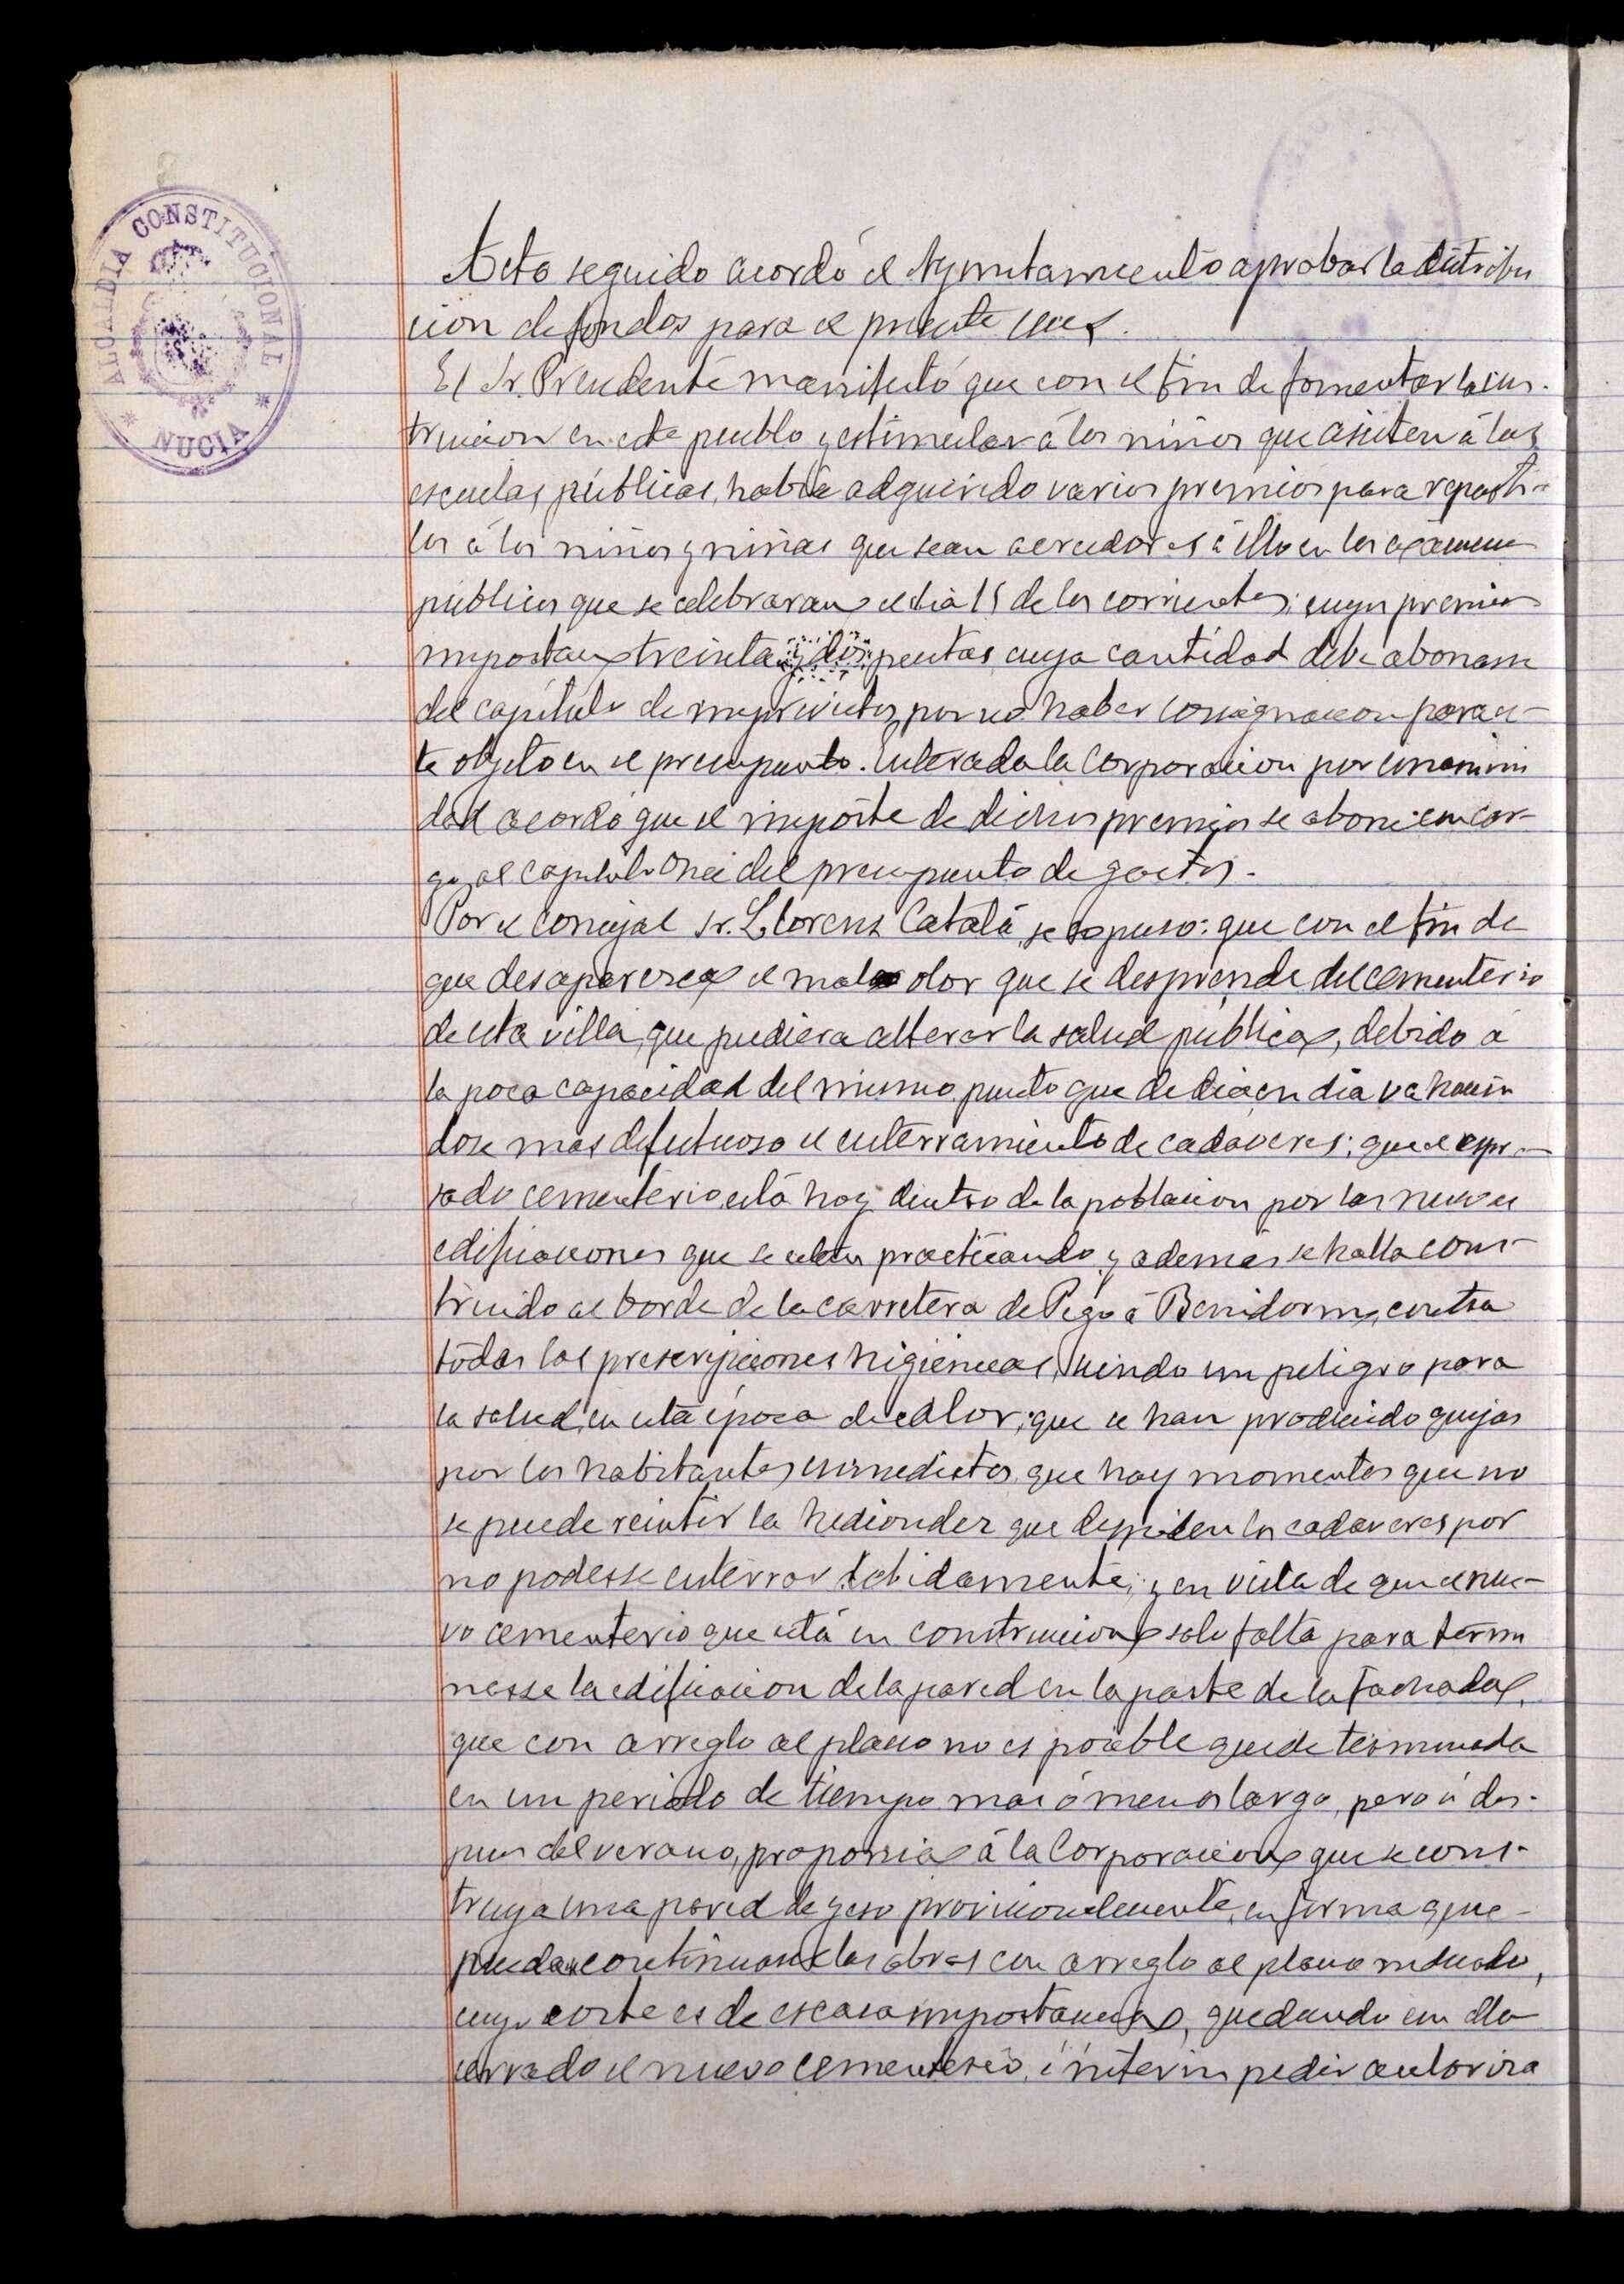 ALCALDIA CONSTITUCIONAL
* NUCIA *
Acto seguido acordó el Ayuntamiento aprobar la distribu
cion de fondos para el presente mes.
El Sr. Presidente manifestó que con el fin de fomentar la ins-
truccion en este pueblo y estimular á los niños que asisten á las
escuelas públicas, habia adquirido varios premios para reparti-
los á los niños y niñas que sean acreedores á ello en los exámenes
publicos que se celebraran el dia 15 de los corrientes; cuyos premios
importan treinta y dos pesetas, cuya cantidad debe abonarse
del capítulo de imprevistos, por no haber consignacion para es-
te objeto en el presupuesto. Enterada la Corporacion por unanimi
dad acordó que el importe de dichos premios se abone con car-
go al capitulo Once del presupuesto de gastos.
Por el concejal Sr. Llorens Catalá, se espuso: que con el fin de
que desaparezca el mal olor que se desprende del cementerio
de esta villa, que pudiera alterar la salud publica, debido á
la poca capacidad del mismo, puesto que de dia en dia va hacien
dose mas defectuoso el enterramiento de cadaveres; que el espre-
sado cementerio está hoy dentro de la poblacion por las nuevas
edificaciones que se estan practicando y además se halla cons-
truido al borde de la carretera de Pego á Benidorm, contra
todas las prescripciones higienicas, siendo un peligro para
la salud, en esta época de calor; que se han producido quejas
por los habitantes inmediatos, que hay momentos que no
se puede resistir la hediondez que despiden los cadaveres por
no poderse enterrar debidamente; y en vista de que el nue-
vo cementerio que está en construccion solo falta para termi
narse la edificacion de la pared en la parte de la fachada,
que con arreglo al plano no es posible quede terminada
en un periodo de tiempo mas ó menos largo, pero si des-
pues del verano, proponia á la Corporacion que se cons-
truya una pared de yeso provisionalmente, en forma que
puedan continuarse las obras con arreglo al plano indicado,
cuyo coste es de escasa importancia, quedando con ello
cerrado el nuevo cementerio, é interin pedir autoriza